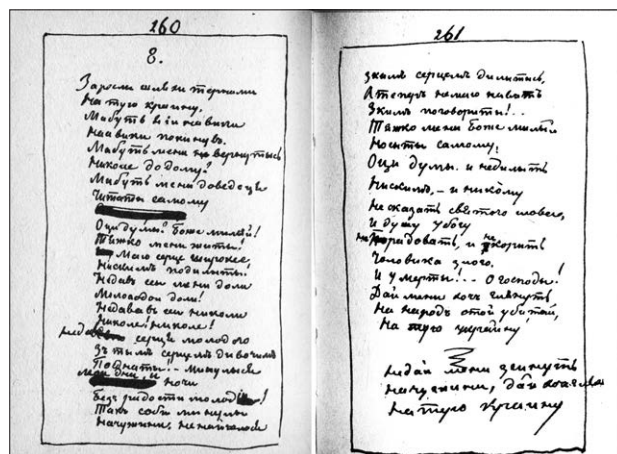 260
8.
Заросли шляхи тернами
На тую краину,
Мабуть я іи на вики
На вики покинувъ.
Мабуть мени не вернутысь
Николе до дому?
Мабуть мени доведеця
Читаты самому
Оци думы? Боже милый!
Тяжко мени жыты!
Маю серце широкее,
Ни съкимъ подилыты!
Не давъ еси мени доли
Молодои доли!
Не дававъ еси николи
Николе! николе!
не давъ серце молодого
Зъ тымъ серцемъ дивочимъ
Поэнаты! — Минулыся
мои дни, и ночи
Безъ радости молодіи!
Такъ соби минулы
На чужини. Не найшлося
261
Зкимъ серцемъ дилытысь,
А теперъ немаю навить
Зкимъ поговорыты!..
Тяжко мени Боже милый
Носыты самому,
Оци думы. И не дилыть
Ни скимъ, — и никому
Не сказать святого слова,
И душу убогу
не радовать, и не корить
Чоловика злого.
И умерты!.. О Господы!
Дай мени хочъ глянуть
На народъ отой убитый,
На тую Украину!
не дай мени загинуть
на чужини, дай
На тую Краину